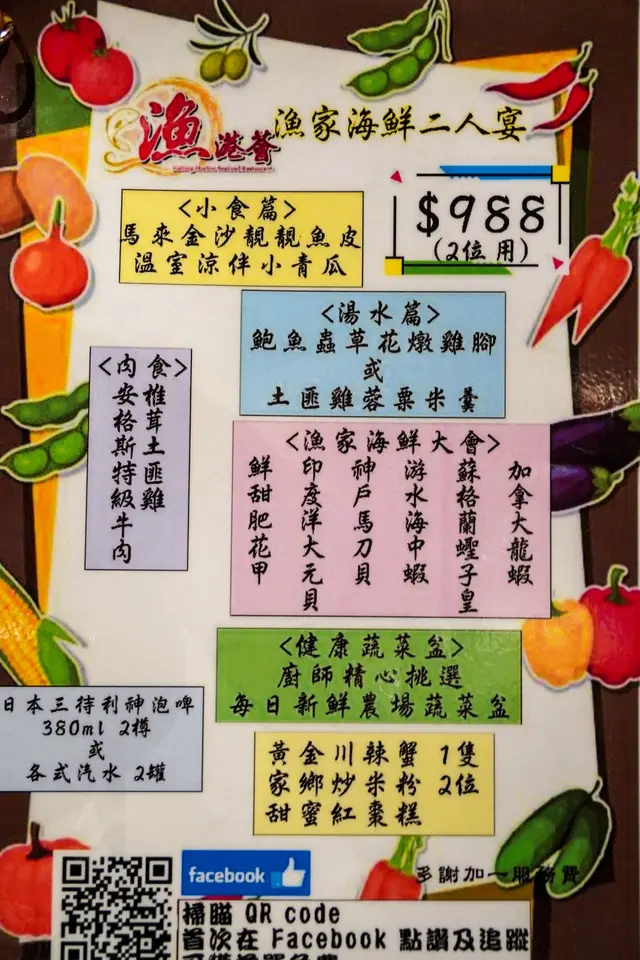 漁港薈
漁家海鮮二人宴
$988
(2位用)
<小食篇>
馬來金沙靚靚魚皮
溫室涼伴小青瓜
<湯水篇>
鮑魚蟲草花燉雞腳
或
土匪雞蓉粟米羹
<肉食>
椎茸土匪雞
安格斯特級牛肉
<漁家海鮮大會>
加拿大龍蝦
蘇格蘭蟶子皇
游水海中蝦
神戶馬刀貝
印度洋大元貝
鮮甜肥花甲
<健康蔬菜盆>
廚師精心挑選
每日新鮮農場蔬菜盆
日本三待利神泡啤
380ml 2樽
或
各式汽水 2罐
黃金川辣蟹 1隻
家鄉炒米粉 2位
甜蜜紅棗糕
facebook
多謝加一服務費
掃瞄 QR code
首次在 Facebook 點讚及追蹤